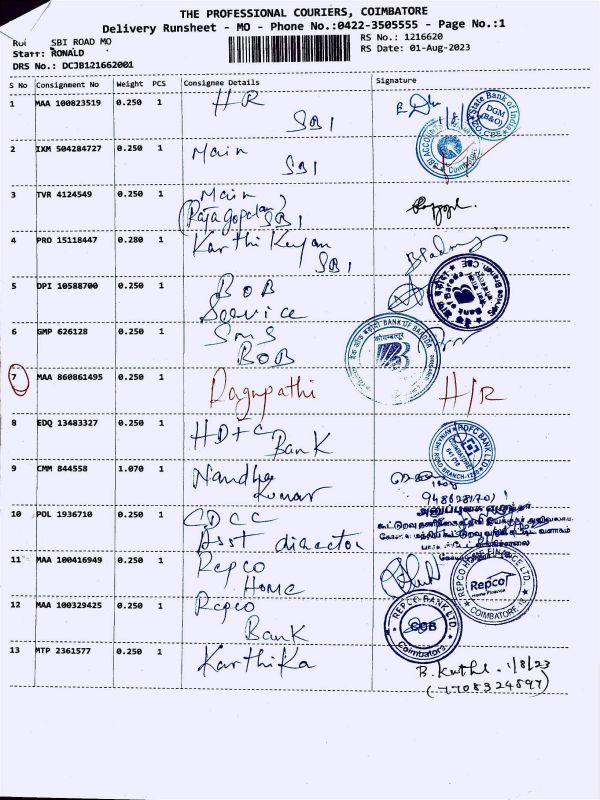 THE PROFESSIONAL COURIERS, COIMBATORE
Delivery Runsheet - MO - Phone No.:0422-3505555 - Page No.:1
SBI ROAD MO
RS No.: 1216620
RONALD
RS Date: 01-Aug-2023
DRS No.: DCJB121662001
S No Consignment No Weight PCS Consignee Details Signature
1 MAA 100823519 0.250 1 HR SBI
State Bank of India DGM (B&O) CBE
2 IXM 504284727 0.250 1 Main SBI
3 TVR 4124549 0.250 1 Main
(Rajagopalan) SBI
4 PRO 15118447 0.280 1 Karthikeyan SBI
5 DPI 10588700 0.250 1 BOB
Service
6 GMP 626128 0.250 1 SMS
BOB
BANK OF BARODA
7 MAA 860861495 0.250 1 Ragupathi H/R
8 EDQ 13483327 0.250 1 HDFC
Bank
HDFC BANK LTD
9 CMM 844558 1.070 1 Nandha
Kumar
10 POL 1936710 0.250 1 CDCC
Asst director
11 MAA 100416949 0.250 1 Repco
Home
REPCO HOME FINANCE LTD Repco Home Finance COIMBATORE
12 MAA 100329425 0.250 1 Repco
Bank
REPCO BANK LTD. CCB Coimbatore
13 MTP 2361577 0.250 1 Karthika
1/8/23